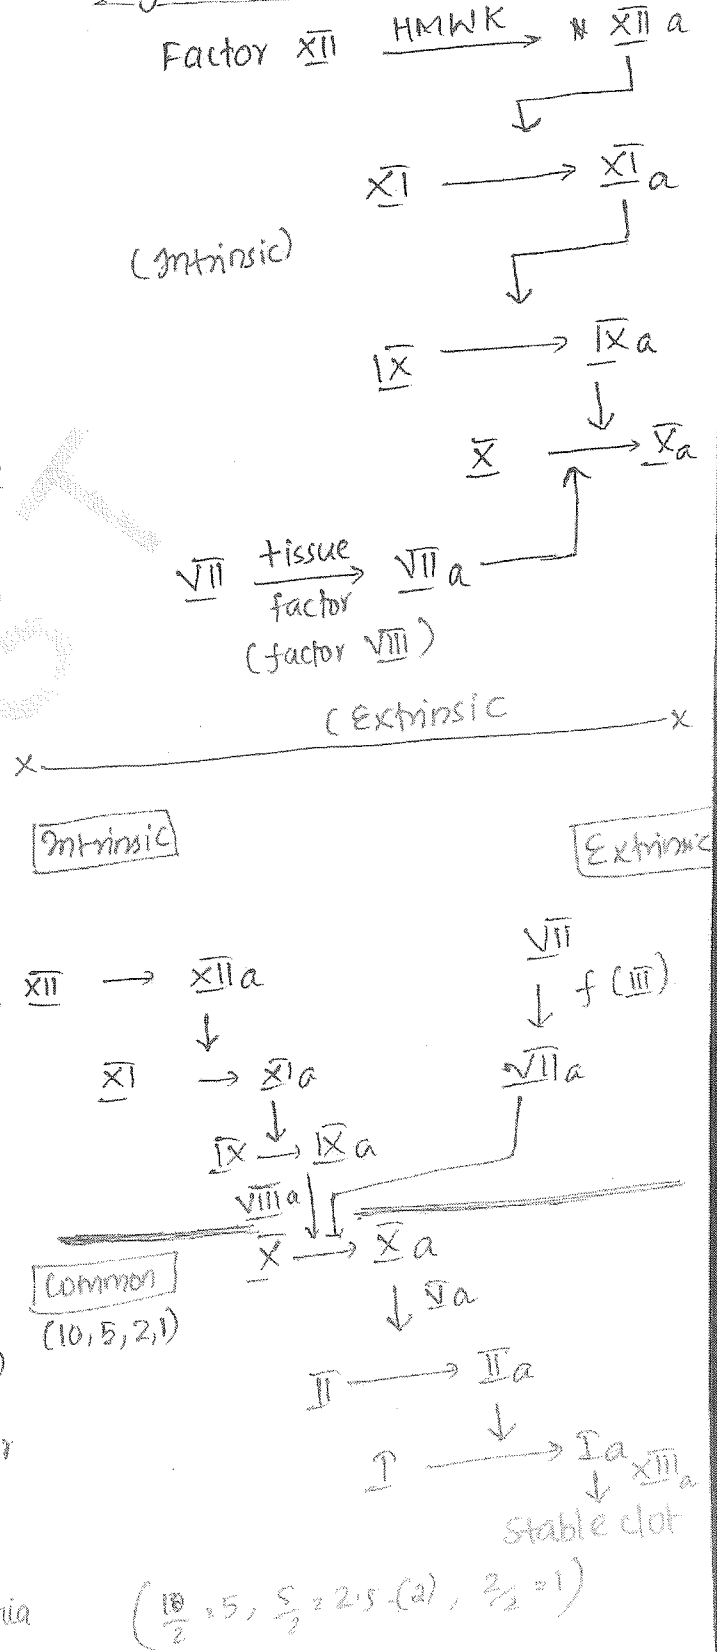 Factor XII HMWK → XII a
XI → XI a
(Intrinsic)
IX → IX a
X → Xa
VII tissue → VII a
factor
(factor VIII)
(Extrinsic
x x
Intrinsic Extrinsic
VII
XII → XII a f (III)
XI → XI a VII a
IX → IX a
VIII a
X → X a
Common
(10, 5, 2, 1) V a
II → II a
I → I a XIII a
Stable clot
(10/2 = 5, 5/2 = 2.5 (2), 2/2 = 1)